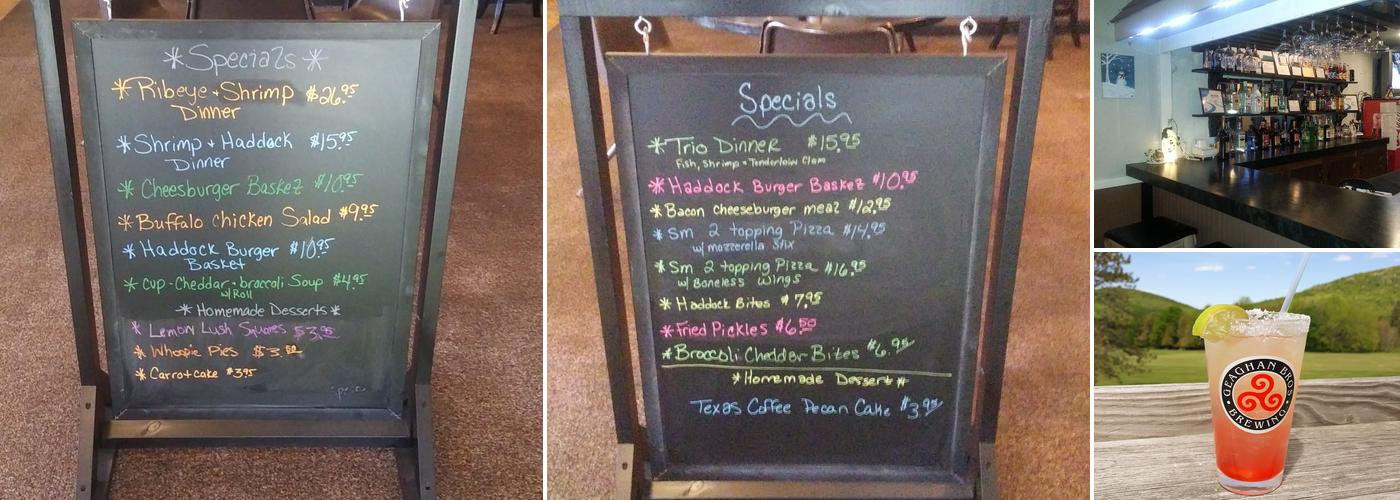 * Specials *
* Ribeye + Shrimp $26.95
Dinner
* Shrimp + Haddock $15.95
Dinner
* Cheesburger Basket $10.95
* Buffalo chicken Salad $9.95
* Haddock Burger $10.95
Basket
* cup-Cheddar-broccoli Soup $4.95
w/Roll
* Homemade Desserts *
* Lemon Lush Squares $3.95
* Whoopie Pies $3.50
* Carrot cake $3.95
Specials
* Trio Dinner $15.95
Fish, Shrimp + Tenderloin Clam
* Haddock Burger Basket $10.95
* Bacon cheeseburger meal $12.95
* Sm 2 topping Pizza $14.95
w/ mozzerella Stix
* Sm 2 topping Pizza $16.95
w/ Boneless Wings
* Haddock Bites $7.95
* Fried Pickles $6.50
* Broccoli Chedder Bites $6.95
* Homemade Dessert *
Texas Coffee Pecan Cake $3.95
GEAGHAN BROS
BREWING